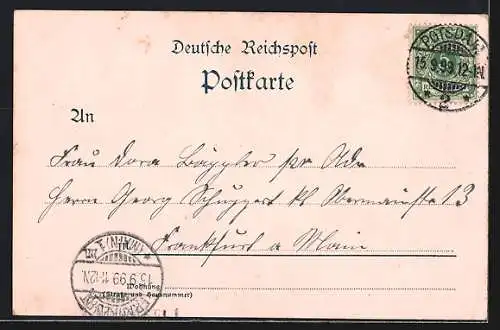 Deutsche Reichspost
Postkarte
POTSDAM
15.9.99.12-1N.
* 2 *
An
Frau Dora Bäppler pr Adr
Herrn Georg Schuppert kl Obermainstr 13
Frankfurt a Main
15.9.99. 11-12N.
Wohnung
(Straße und Hausnummer)